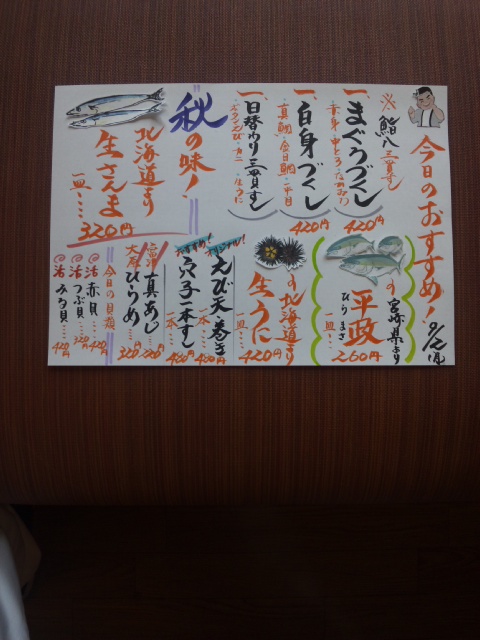 今日のおすすめ!
9/2(月)
※鮨八三貫ずし
一、まぐろづくし
赤身・中とろ・
420円
一、白身づくし
真鯛・金目鯛・平目
420円
一、日替わり三貫ずし
420円
秋の味!
北海道より
生さんま
一皿…
320円
宮崎県より
平政
ひらまさ
一皿…
260円
北海道より
生うに
一皿…
420円
オリジナル!
えび天巻き
一本…
おすすめ!
穴子一本すし
一本…
480円
真あじ…
大原
ひらめ…
320円
今日の貝類
活赤貝…
420円
活つぶ貝…
320円
活みる貝…
420円